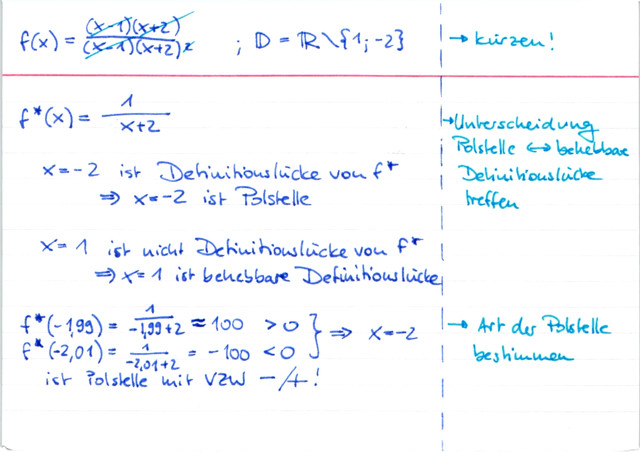 f(x) = (x-1)(x+2) / (x-1)(x+2)² ; D = ℝ \ {1; -2} → kürzen!
f*(x) = 1 / x+2 → Unterscheidung
Polstelle ↔ behebbare
x = -2 ist Definitionslücke von f* Definitionslücke
⇒ x = -2 ist Polstelle treffen
x = 1 ist nicht Definitionslücke von f*
⇒ x = 1 ist behebbare Definitionslücke
f*(-1,99) = 1 / -1,99+2 ≈ 100 > 0 } ⇒ x = -2 → Art der Polstelle
f*(-2,01) = 1 / -2,01+2 = -100 < 0 bestimmen
ist Polstelle mit VZW -/+!